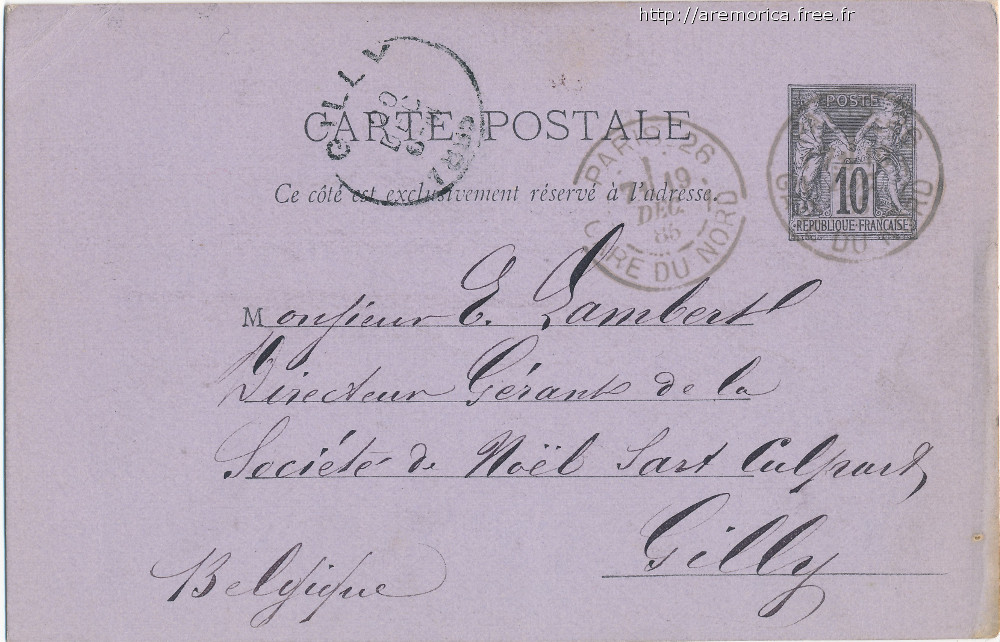 http://aremorica.free.fr
CARTE POSTALE
Ce côté est exclusivement réservé à l'adresse.
GILLY
DEC
1885
PARIS 26
19
DEC
85
GARE DU NORD
POSTE
10
REPUBLIQUE FRANÇAISE
DU NORD
Monsieur E. Lambert
Directeur Gérant de la
Société de Noël Sart Culpart
Gilly
Belgique